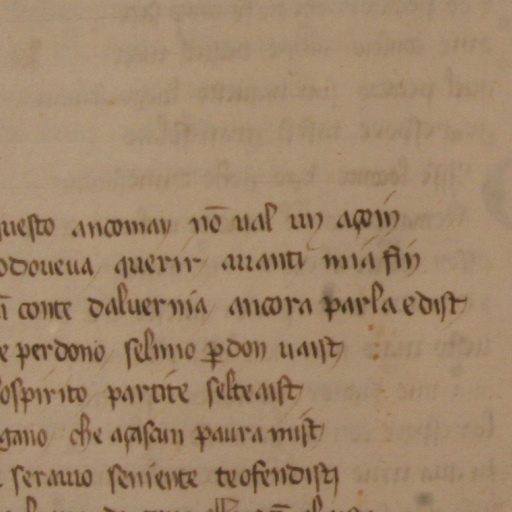 questo ancomay nō ual un açoin
odoueua querir auanti mia fin
conte daluernia ancora parla e dist
e perdono selmio ꝑdon uaist
ospirito partite selteaist
gano che açascun paura mist
serauo seniente teofendisti